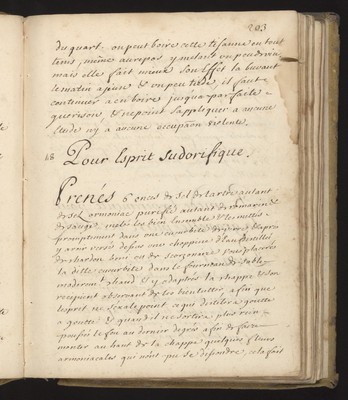 203
du quart. on peut boire cette tisanne en tout
tems, même au repos y mélant un peu de vin
mais elle fait mieux son effet la buvant
le matin a jeun & un peu tiede, il faut
continuer a en boire jusqu'a parfaite
guerison, & ne point s'appliquer a aucune
étude ny a aucune occupaon violente.
48 Pour Esprit sudorifique.
Prenés 6 onces de sel de tartre autant
de sel armoniac purifié autant de romarin &
de sauge, mélés les bien ensemble & les mettés
promptement dans une cucurbite de verre & apres
y avoir versé dessus une choppine d'eau distillée
de chardon benit ou de scorzonaire vous placerés
la ditte cucurbite dans le fourneau de sable
moderemt. chaud & y adapterés la chappe & son
recipient observant de les bien lutter, afin que
l'esprit ne s'exale point ce qui distilera goutte
a goutte & quand il ne sortira plus rien
poussés le feu au dernier degrés afin de faire
monter au haut de la chappe quelques fleurs
armoniacales qui n'ont pu se dissoudre, cela fait